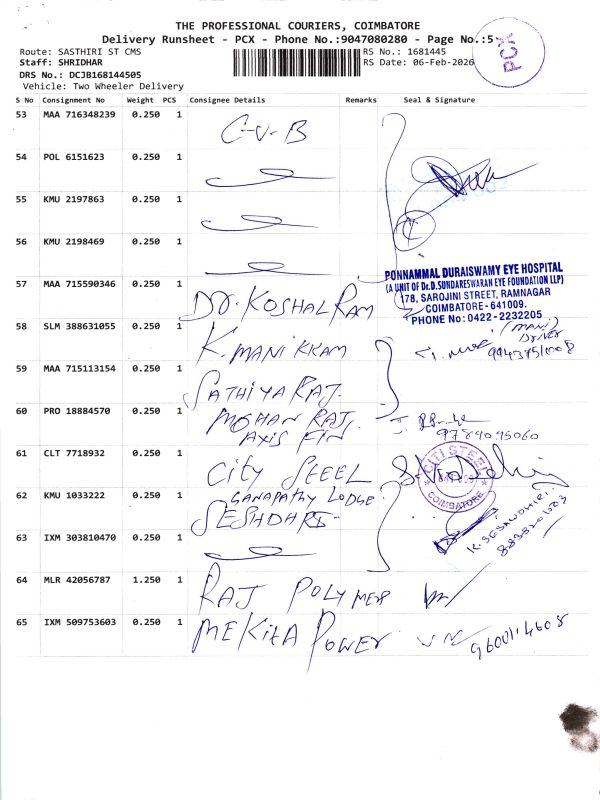 THE PROFESSIONAL COURIERS, COIMBATORE
Delivery Runsheet - PCX - Phone No.:9047080280 - Page No.:5
PCX
Route: SASTHIRI ST CMS
RS No.: 1681445
Staff: SHRIDHAR
RS Date: 06-Feb-2026
DRS No.: DCJB168144505
Vehicle: Two Wheeler Delivery
S No Consignment No Weight PCS Consignee Details Remarks Seal & Signature
53 MAA 716348239 0.250 1 C-V-B
54 POL 6151623 0.250 1
55 KMU 2197863 0.250 1
56 KMU 2198469 0.250 1
PONNAMMAL DURAISWAMY EYE HOSPITAL
(A UNIT OF Dr.D.SUNDARESWARAN EYE FOUNDATION LLP)
178, SAROJINI STREET, RAMNAGAR
COIMBATORE - 641009.
PHONE No: 0422-2232205
57 MAA 715590346 0.250 1 DR. KOSHAL RAM
58 SLM 388631055 0.250 1 K. MANI KKAM
(MANI)
DRIVER
59 MAA 715113154 0.250 1 SATHIYA RAJ.
60 PRO 18884570 0.250 1 MOHAN RAJ
AXIS FIN
9789095060
61 CLT 7718932 0.250 1 City STEEL
CITI STEEL
COIMBATORE
62 KMU 1033222 0.250 1 GANAPATHY LODGE
SESHDARI
63 IXM 303810470 0.250 1
64 MLR 42056787 1.250 1 RAJ POLYMER
65 IXM 509753603 0.250 1 MEKITA POWER
9600114608